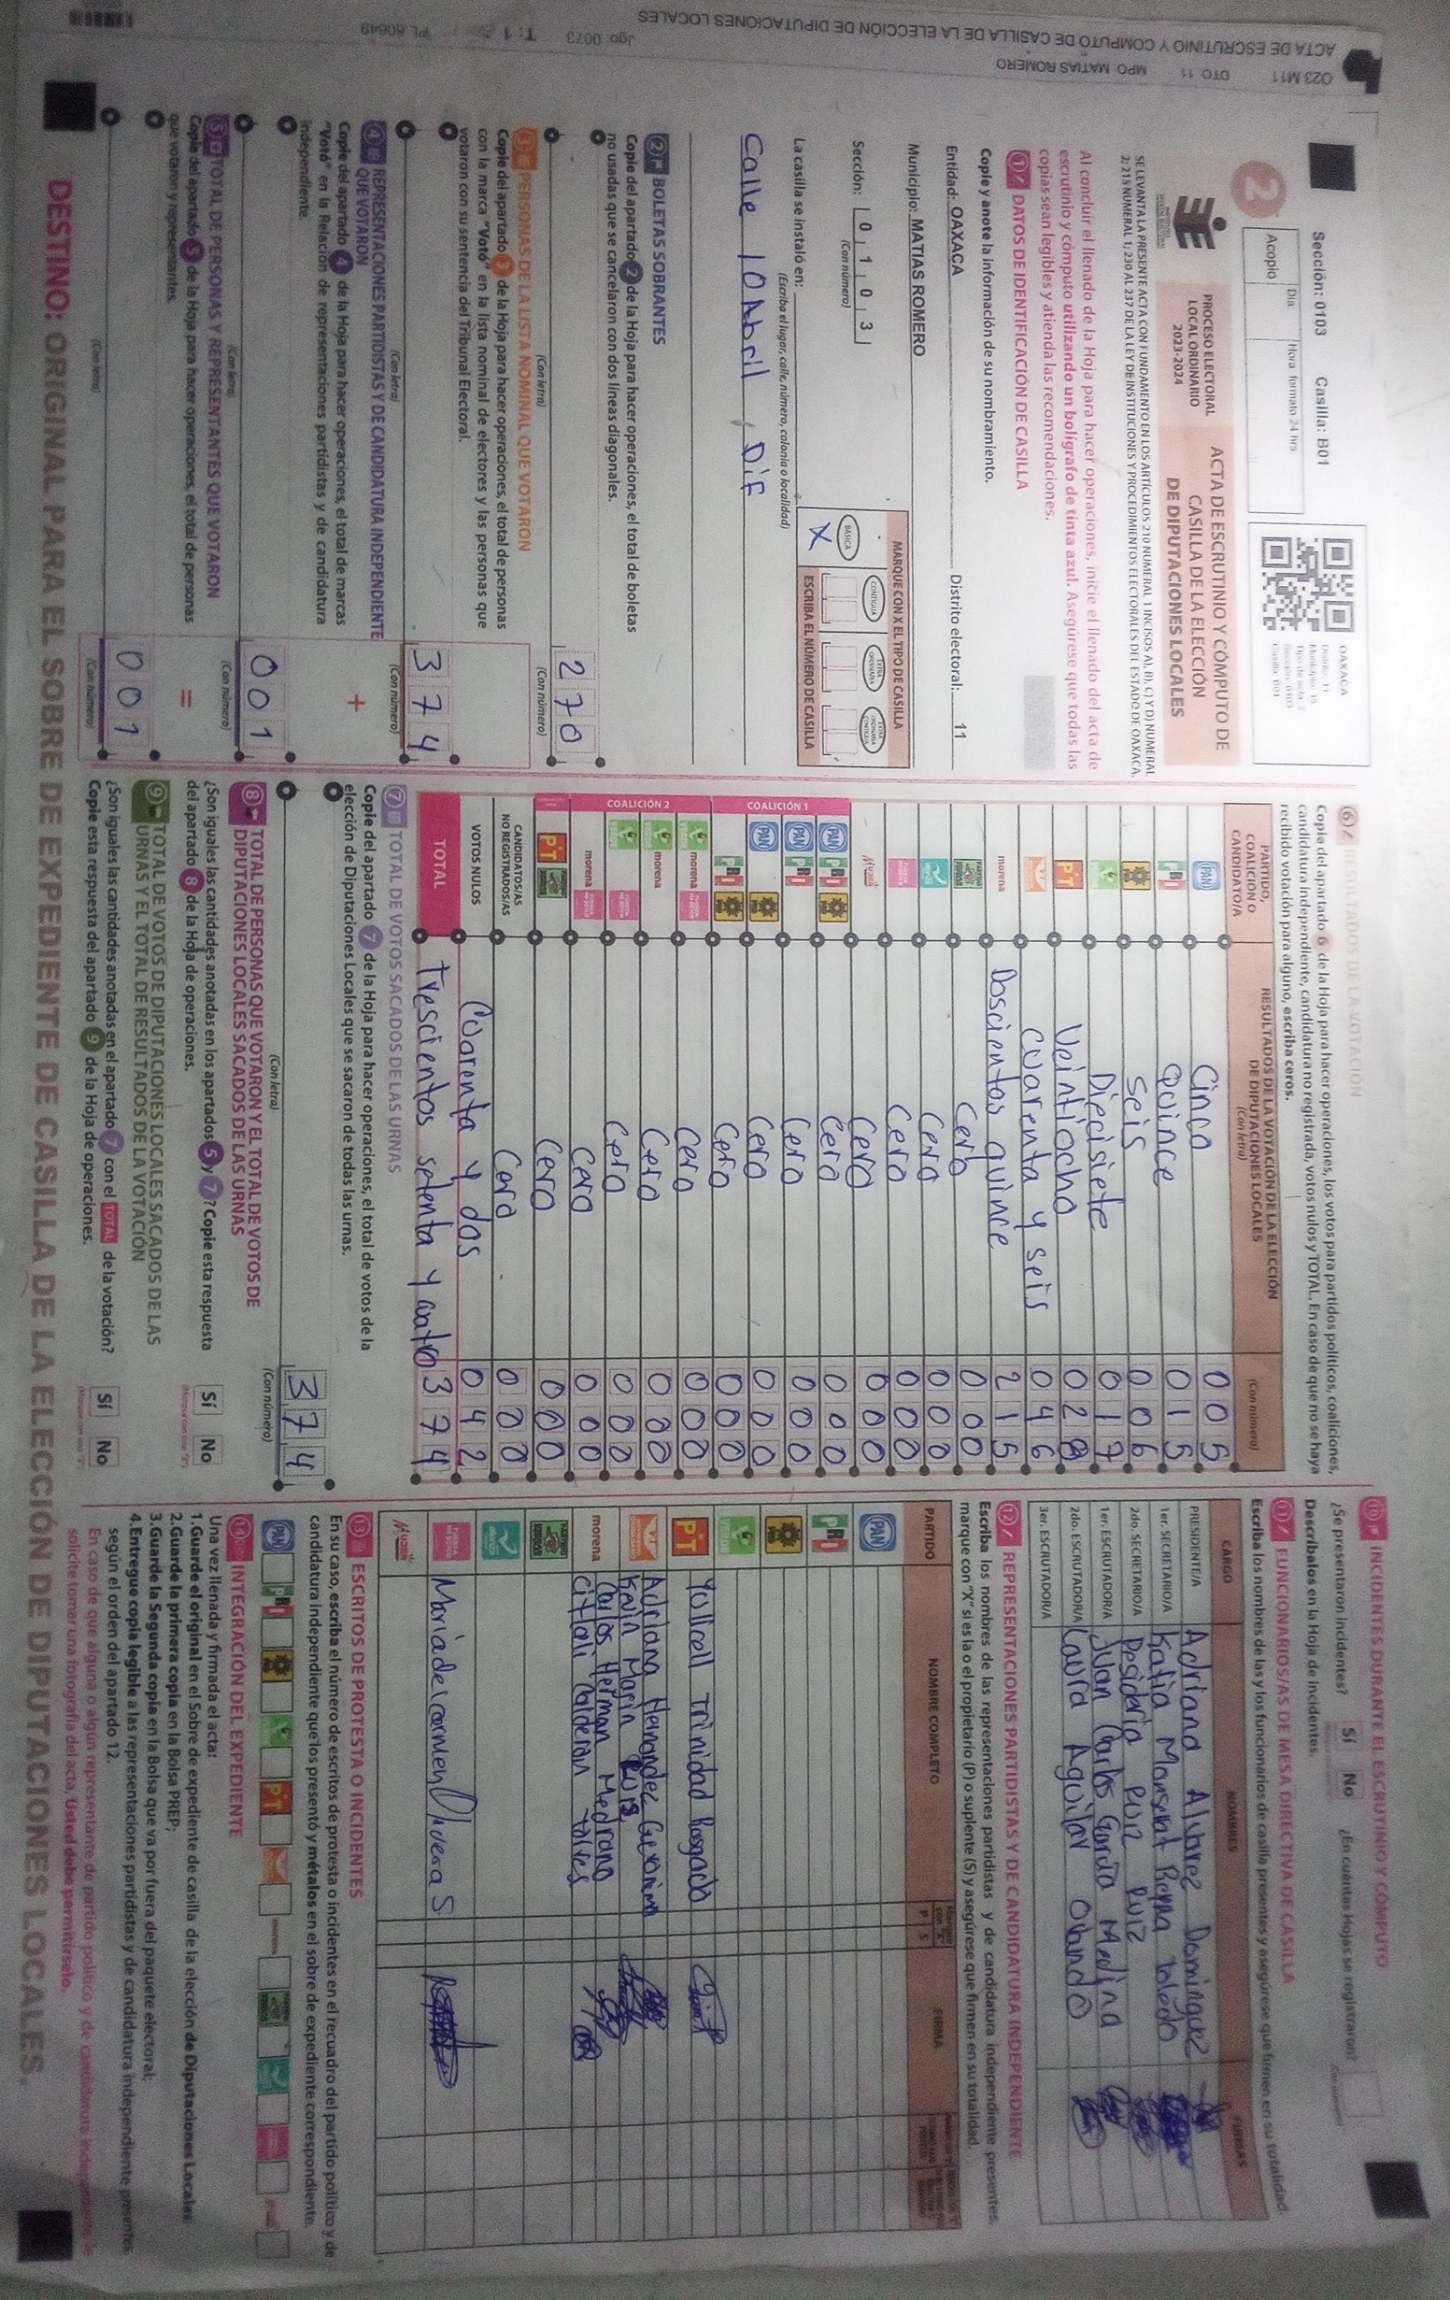 Sección: 0103 Casilla: B01
Día Hora formato 24 hrs
2 Acopio
OAXACA
PROCESO ELECTORAL
LOCAL ORDINARIO
2023-2024
ACTA DE ESCRUTINIO Y CÓMPUTO DE
CASILLA DE LA ELECCIÓN
DE DIPUTACIONES LOCALES
Al concluir el llenado de la Hoja para hacer operaciones, inicie el llenado del acta de
escrutinio y cómputo utilizando un bolígrafo de tinta azul. Asegúrese que todas las
copias sean legibles y atienda las recomendaciones.
1 DATOS DE IDENTIFICACIÓN DE CASILLA
Copie y anote la información de su nombramiento.
Entidad: OAXACA Distrito electoral: 11
Municipio: MATIAS ROMERO
Sección: 0 1 0 3
(Con número)
MARQUE CON X EL TIPO DE CASILLA
BÁSICA CONTIGUA
X ESCRIBA EL NÚMERO DE CASILLA
La casilla se instaló en:
(Escriba el lugar, calle, número, colonia o localidad)
Calle 10 Abril, Dif
2 BOLETAS SOBRANTES
Copie del apartado 2 de la Hoja para hacer operaciones, el total de boletas
no usadas que se cancelaron con dos líneas diagonales.
270
(Con letra) (Con número)
3 PERSONAS DE LA LISTA NOMINAL QUE VOTARON
Copie del apartado 3 de la Hoja para hacer operaciones, el total de personas
con la marca "Votó" en la lista nominal de electores y las personas que
votaron con su sentencia del Tribunal Electoral.
374
(Con letra) (Con número)
4 REPRESENTACIONES PARTIDISTAS Y DE CANDIDATURA INDEPENDIENTE
QUE VOTARON
Copie del apartado 4 de la Hoja para hacer operaciones, el total de marcas
"Votó" en la Relación de representaciones partidistas y de candidatura
independiente.
+
001
(Con letra) (Con número)
5 TOTAL DE PERSONAS Y REPRESENTANTES QUE VOTARON
Copie del apartado 5 de la Hoja para hacer operaciones, el total de personas
que votaron y representantes.
=
001
(Con letra) (Con número)
6 RESULTADOS DE LA VOTACIÓN
Copie del apartado 6 de la Hoja para hacer operaciones, los votos para partidos políticos, coaliciones,
candidatura independiente, candidatura no registrada, votos nulos y TOTAL. En caso de que no se haya
recibido votación para alguno, escriba ceros.
PARTIDO,
COALICIÓN O
CANDIDATO/A
RESULTADOS DE LA VOTACIÓN DE LA ELECCIÓN
DE DIPUTACIONES LOCALES
(Con letra) (Con número)
PAN Cinco 005
PRI Quince 015
Seis 006
Diecisiete 017
PT Veintiocho 028
Cuarenta y seis 046
morena Doscientos quince 215
Cero 000
Cero 000
Cero 000
Cero 000
COALICIÓN 1
PAN PRI Cero 000
PAN PRI Cero 000
PAN Cero 000
PRI Cero 000
COALICIÓN 2
morena Cero 000
morena Cero 000
Cero 000
morena Cero 000
PT Cero 000
CANDIDATOS/AS
NO REGISTRADOS/AS Cero 000
VOTOS NULOS Cuarenta y dos 042
TOTAL Trescientos setenta y cuatro 374
7 TOTAL DE VOTOS SACADOS DE LAS URNAS
Copie del apartado 7 de la Hoja para hacer operaciones, el total de votos de la
elección de Diputaciones Locales que se sacaron de todas las urnas.
374
(Con letra) (Con número)
8 TOTAL DE PERSONAS QUE VOTARON Y EL TOTAL DE VOTOS DE
DIPUTACIONES LOCALES SACADOS DE LAS URNAS
¿Son iguales las cantidades anotadas en los apartados 5 y 7? Copie esta respuesta
del apartado 8 de la Hoja de operaciones.
Sí No
9 TOTAL DE VOTOS DE DIPUTACIONES LOCALES SACADOS DE LAS
URNAS Y EL TOTAL DE RESULTADOS DE LA VOTACIÓN
¿Son iguales las cantidades anotadas en el apartado 7 con el TOTAL de la votación?
Copie esta respuesta del apartado 9 de la Hoja de operaciones.
Sí No
10 INCIDENTES DURANTE EL ESCRUTINIO Y CÓMPUTO
¿Se presentaron incidentes? Sí No ¿En cuántas Hojas se registraron?
Descríbalos en la Hoja de incidentes.
11 FUNCIONARIOS/AS DE MESA DIRECTIVA DE CASILLA
Escriba los nombres de las y los funcionarios de casilla presentes y asegúrese que firmen en su totalidad.
CARGO NOMBRES FIRMAS
PRESIDENTE/A
1er. SECRETARIO/A
2do. SECRETARIO/A
1er. ESCRUTADOR/A Juan Carlos García Medina
2do. ESCRUTADOR/A Laura Aguilar Obando
3er. ESCRUTADOR/A
12 REPRESENTACIONES PARTIDISTAS Y DE CANDIDATURA INDEPENDIENTE
Escriba los nombres de las representaciones partidistas y de candidatura independiente presentes,
marque con "X" si es la o el propietario (P) o suplente (S) y asegúrese que firmen en su totalidad.
PARTIDO NOMBRE COMPLETO P S FIRMA
PAN
PRI
PT
morena
13 ESCRITOS DE PROTESTA O INCIDENTES
En su caso, escriba el número de escritos de protesta o incidentes en el recuadro del partido político y de
candidatura independiente que los presentó y métalos en el sobre de expediente correspondiente.
PAN PRI PT
14 INTEGRACIÓN DEL EXPEDIENTE
Una vez llenada y firmada el acta:
1. Guarde el original en el Sobre de expediente de casilla de la elección de Diputaciones Locales;
2. Guarde la primera copia en la Bolsa PREP;
3. Guarde la Segunda copia en la Bolsa que va por fuera del paquete electoral;
4. Entregue copia legible a las representaciones partidistas y de candidatura independiente presentes,
según el orden del apartado 12.
En caso de que alguna o algún representante de partido político y de candidatura independiente le
solicite tomar una fotografía del acta, Usted debe permitírselo.
DESTINO: ORIGINAL PARA EL SOBRE DE EXPEDIENTE DE CASILLA DE LA ELECCIÓN DE DIPUTACIONES LOCALES.
023 M11 DTO. 11 MPO. MATIAS ROMERO
ACTA DE ESCRUTINIO Y CÓMPUTO DE CASILLA DE LA ELECCIÓN DE DIPUTACIONES LOCALES
Jgo. 0073 T: 1